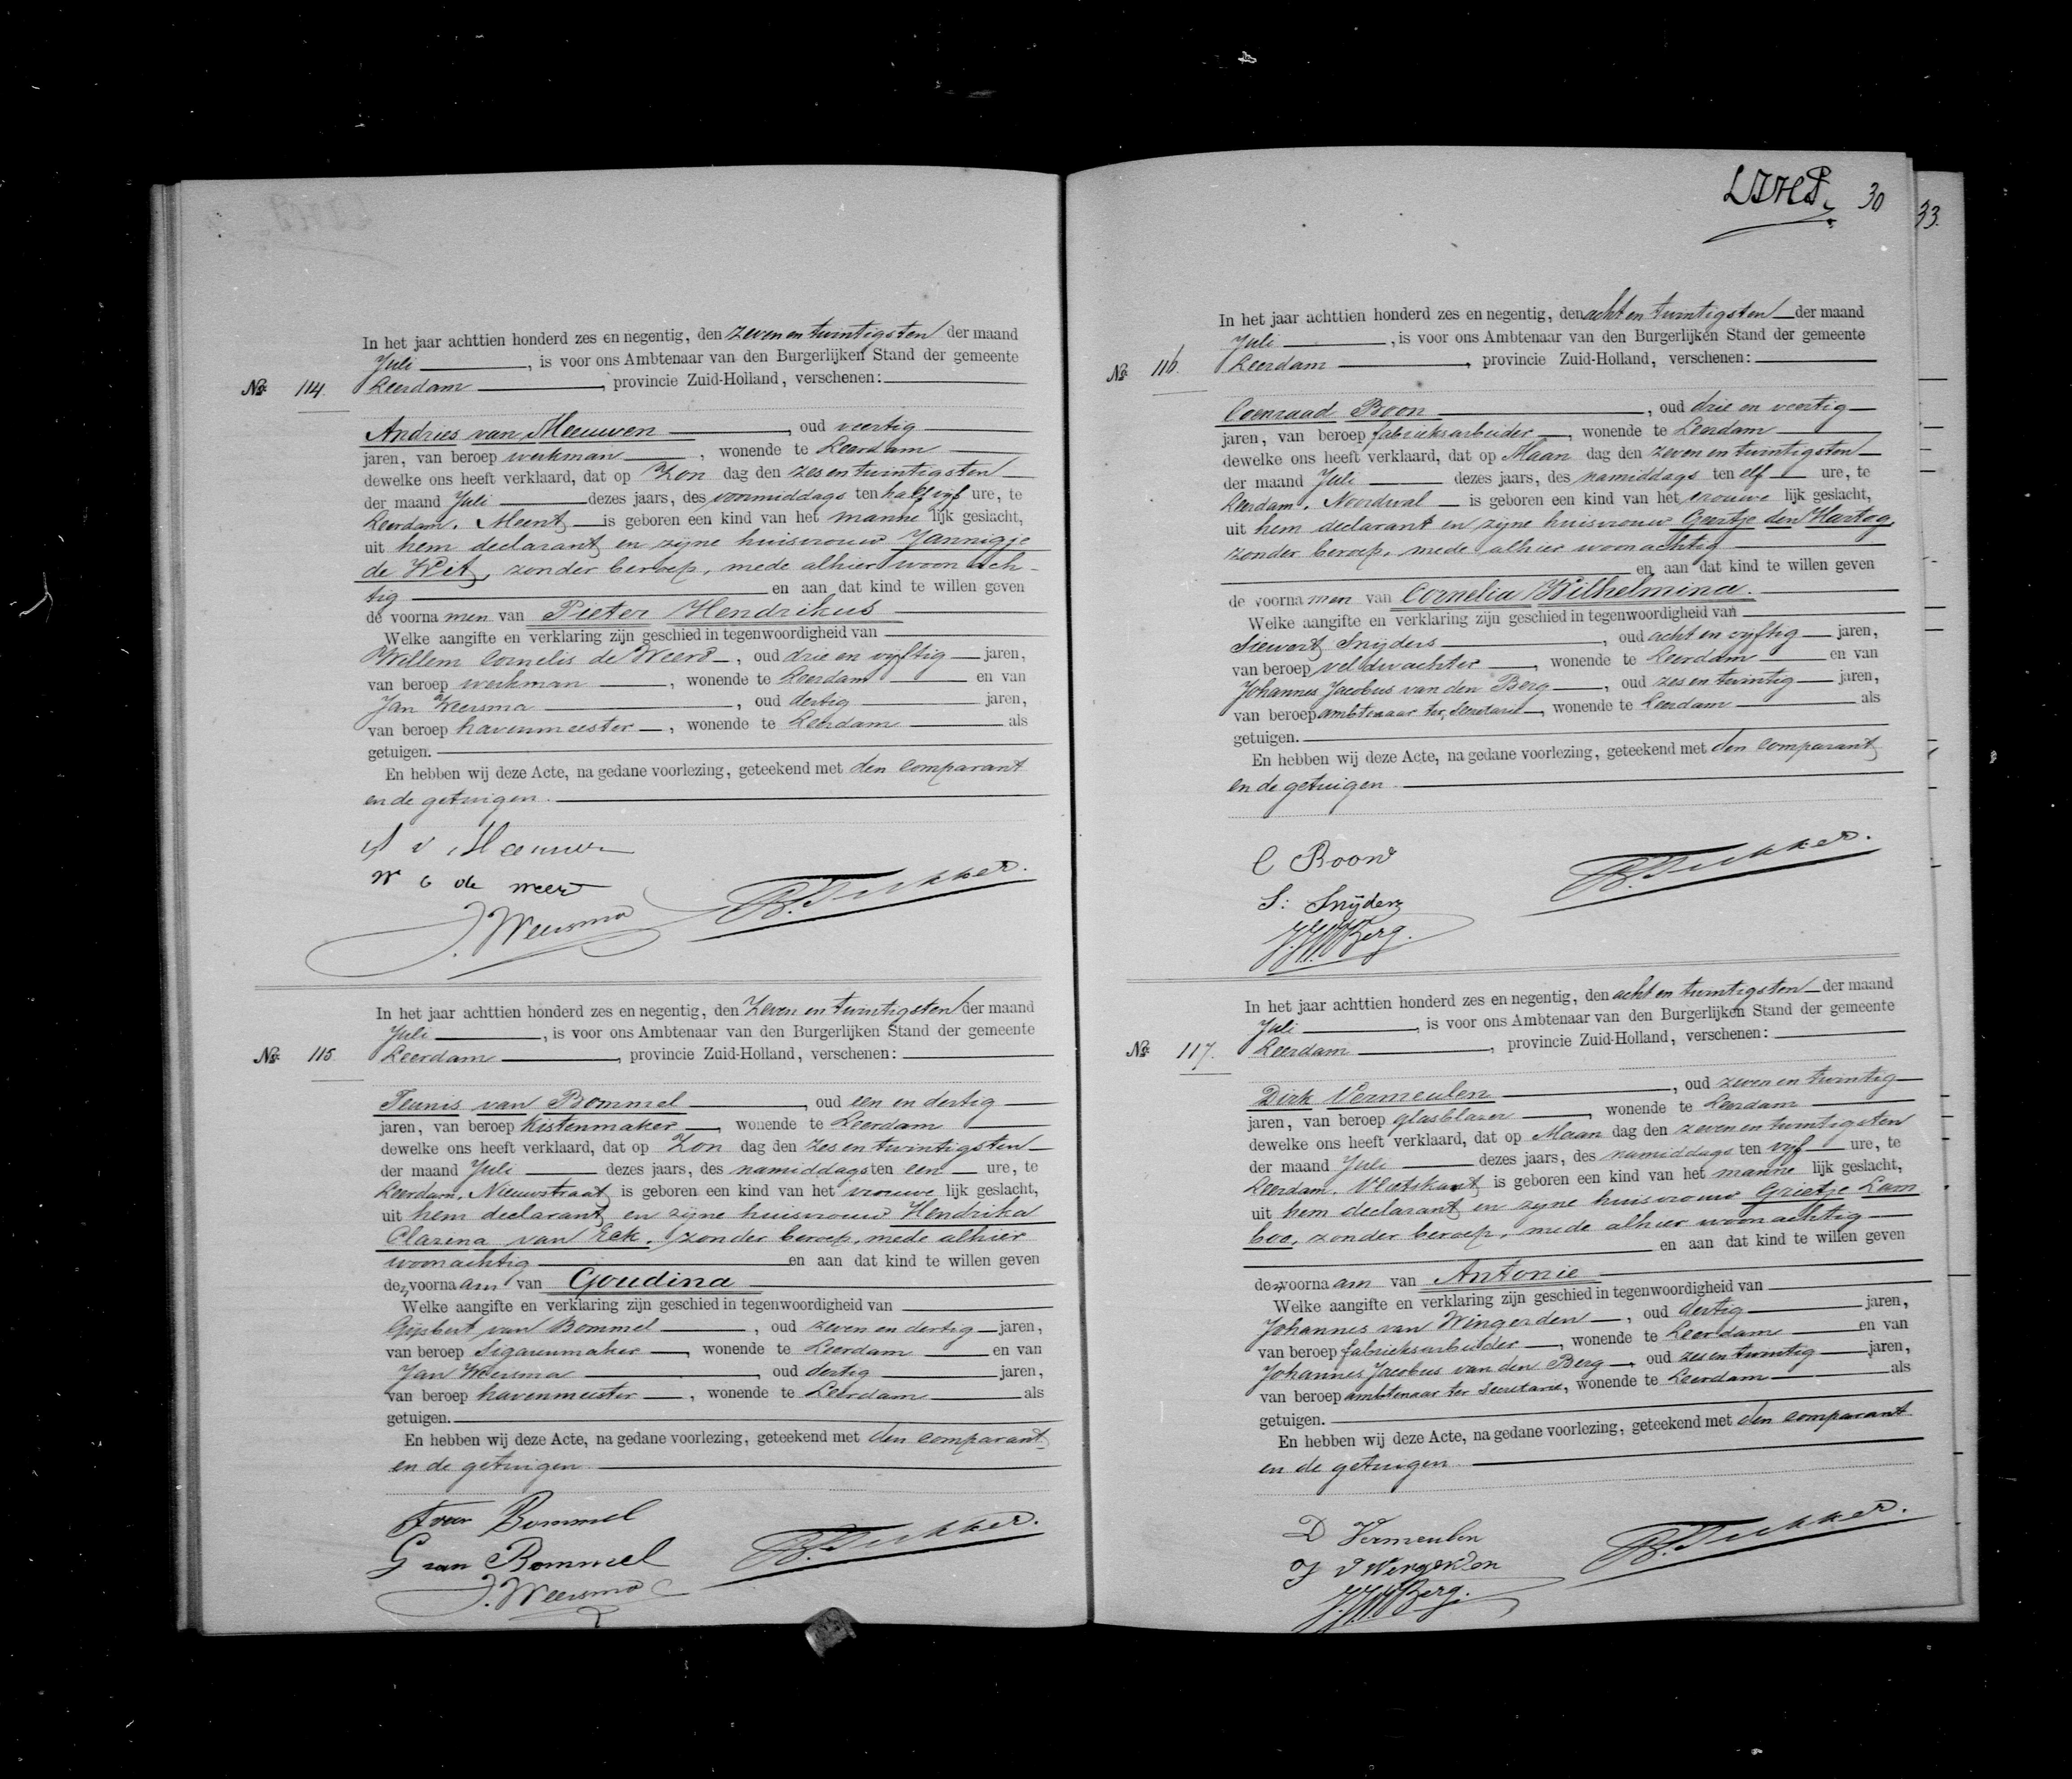 In het jaar achttien honderd zes en negentig, den zeven en twintigsten der maand
Juli, is voor ons Ambtenaar van den Burgerlijken Stand der gemeente
No. 114. Leerdam, provincie Zuid-Holland, verschenen:
Andries van Meeuwen, oud veertig
jaren, van beroep werkman, wonende te Leerdam
dewelke ons heeft verklaard, dat op Zon dag den zes en twintigsten
der maand Juli dezes jaars, des voormiddags ten half vijf ure, te
Leerdam, Meent is geboren een kind van het manne lijk geslacht,
uit hem declarant en zijne huisvrouw Jannigje
de Wit, zonder beroep, mede alhier woonach-
tig en aan dat kind te willen geven
de voorna men van Pieter Hendrikus
Welke aangifte en verklaring zijn geschied in tegenwoordigheid van
Willem Cornelis de Weerd, oud drie en vijftig jaren,
van beroep werkman, wonende te Leerdam en van
Jan Weersma, oud dertig jaren,
van beroep havenmeester, wonende te Leerdam als
getuigen.
En hebben wij deze Acte, na gedane voorlezing, geteekend met den comparant
en de getuigen.
A v Meeuwen
W C de Weerd
J. Weersma
In het jaar achttien honderd zes en negentig, den Zeven en twintigsten der maand
Juli, is voor ons Ambtenaar van den Burgerlijken Stand der gemeente
No. 115 Leerdam, provincie Zuid-Holland, verschenen:
Teunis van Bommel, oud een en dertig
jaren, van beroep kistenmaker, wonende te Leerdam
dewelke ons heeft verklaard, dat op Zon dag den zes en twintigsten
der maand Juli dezes jaars, des namiddags ten een ure, te
Leerdam, Nieuwstraat is geboren een kind van het vrouwe lijk geslacht,
uit hem declarant en zijne huisvrouw Hendrika
Clasina van Eck, zonder beroep, mede alhier
woonachtig en aan dat kind te willen geven
den voorna am van Goudina
Welke aangifte en verklaring zijn geschied in tegenwoordigheid van
Gijsbert van Bommel, oud zeven en dertig jaren,
van beroep sigarenmaker, wonende te Leerdam en van
Jan Weersma, oud dertig jaren,
van beroep havenmeester, wonende te Leerdam als
getuigen.
En hebben wij deze Acte, na gedane voorlezing, geteekend met den comparant
en de getuigen
T van Bommel
G van Bommel
J. Weersma
30
33.
In het jaar achttien honderd zes en negentig, den acht en twintigsten der maand
Juli, is voor ons Ambtenaar van den Burgerlijken Stand der gemeente
No. 116. Leerdam, provincie Zuid-Holland, verschenen:
Coenraad Boon, oud drie en veertig
jaren, van beroep fabrieksarbeider, wonende te Leerdam
dewelke ons heeft verklaard, dat op Maan dag den zeven en twintigsten
der maand Juli dezes jaars, des namiddags ten elf ure, te
Leerdam, Noordwal is geboren een kind van het vrouwe lijk geslacht,
uit hem declarant en zijne huisvrouw Geertje den Hartog,
zonder beroep, mede alhier woonachtig
en aan dat kind te willen geven
de voorna men van Cornelia Wilhelmina.
Welke aangifte en verklaring zijn geschied in tegenwoordigheid van
Siewert Snijders, oud acht en vijftig jaren,
van beroep veldwachter, wonende te Leerdam en van
Johannes Jacobus van den Berg, oud zes en twintig jaren,
van beroep ambtenaar ter Secretarie, wonende te Leerdam als
getuigen.
En hebben wij deze Acte, na gedane voorlezing, geteekend met den comparant
en de getuigen
C Boon
S: Snijders
In het jaar achttien honderd zes en negentig, den acht en twintigsten der maand
Juli, is voor ons Ambtenaar van den Burgerlijken Stand der gemeente
No. 117. Leerdam, provincie Zuid-Holland, verschenen:
Dirk Vermeulen, oud zeven en twintig
jaren, van beroep glasblazer, wonende te Leerdam
dewelke ons heeft verklaard, dat op Maan dag den zeven en twintigsten
der maand Juli dezes jaars, des namiddags ten vijf ure, te
Leerdam, Vlietskant is geboren een kind van het manne lijk geslacht,
uit hem declarant en zijne huisvrouw Grietje Lam
boo, zonder beroep, mede alhier woonachtig
en aan dat kind te willen geven
den voorna am van Antonie
Welke aangifte en verklaring zijn geschied in tegenwoordigheid van
Johannes van Wingerden, oud dertig jaren,
van beroep fabrieksarbeider, wonende te Leerdam en van
Johannes Jacobus van den Berg, oud zes en twintig jaren,
van beroep ambtenaar ter Secretarie, wonende te Leerdam als
getuigen.
En hebben wij deze Acte, na gedane voorlezing, geteekend met den comparant
en de getuigen
D Vermeulen
J v Wingerden